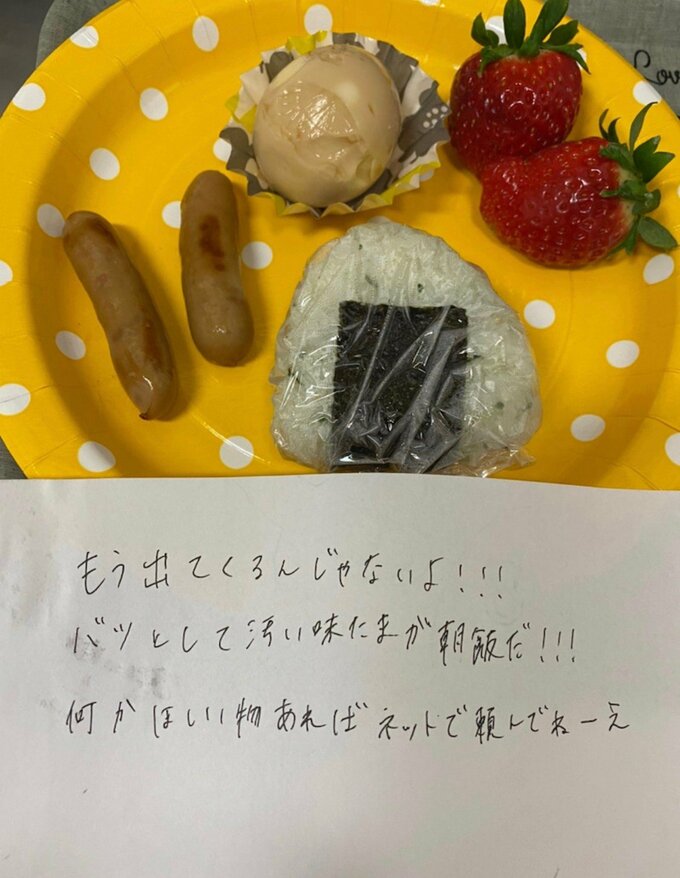 Lov
もう出てくるんじゃないよ!!!
バツとして汚い味たまが朝飯だ!!!
何かほしい物あればネットで頼んでねーえ